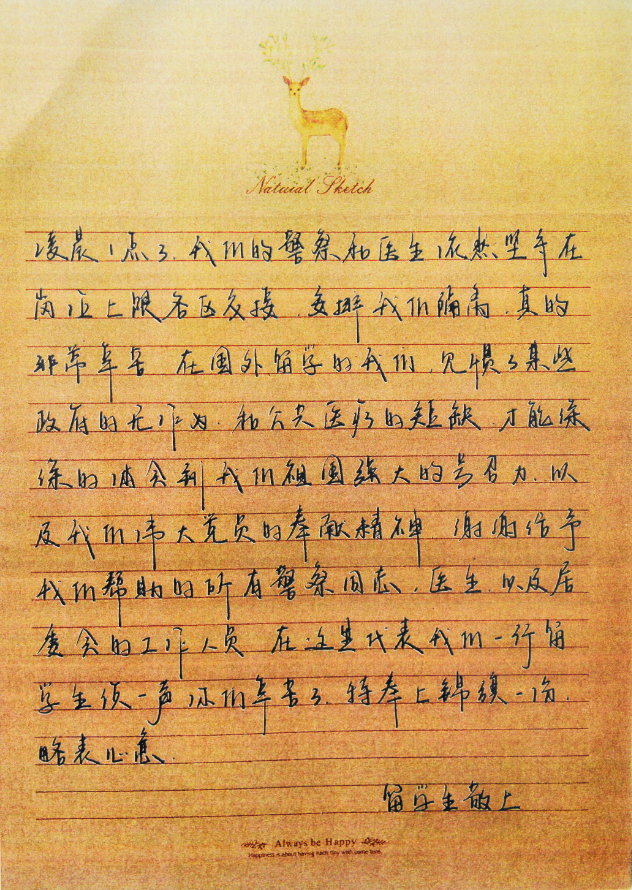 Natural Sketch
凌晨1点了.我们的警察和医生依然坚守在
岗位上跟各区交接.安排我们隔离.真的
非常辛苦 在国外留学的我们.见惯了某些
政府的无作为.和公共医疗的短缺 才能深
深的体会到我们祖国强大的号召力.以
及我们伟大党员的奉献精神 谢谢给予
我们帮助的所有警察同志.医生.以及居
委会的工作人员 在这里代表我们一行留
学生说一声你们辛苦了.特奉上锦旗一份.
略表心意.
留学生敬上
Always be Happy
Happiness is about having each tiny wish come true.